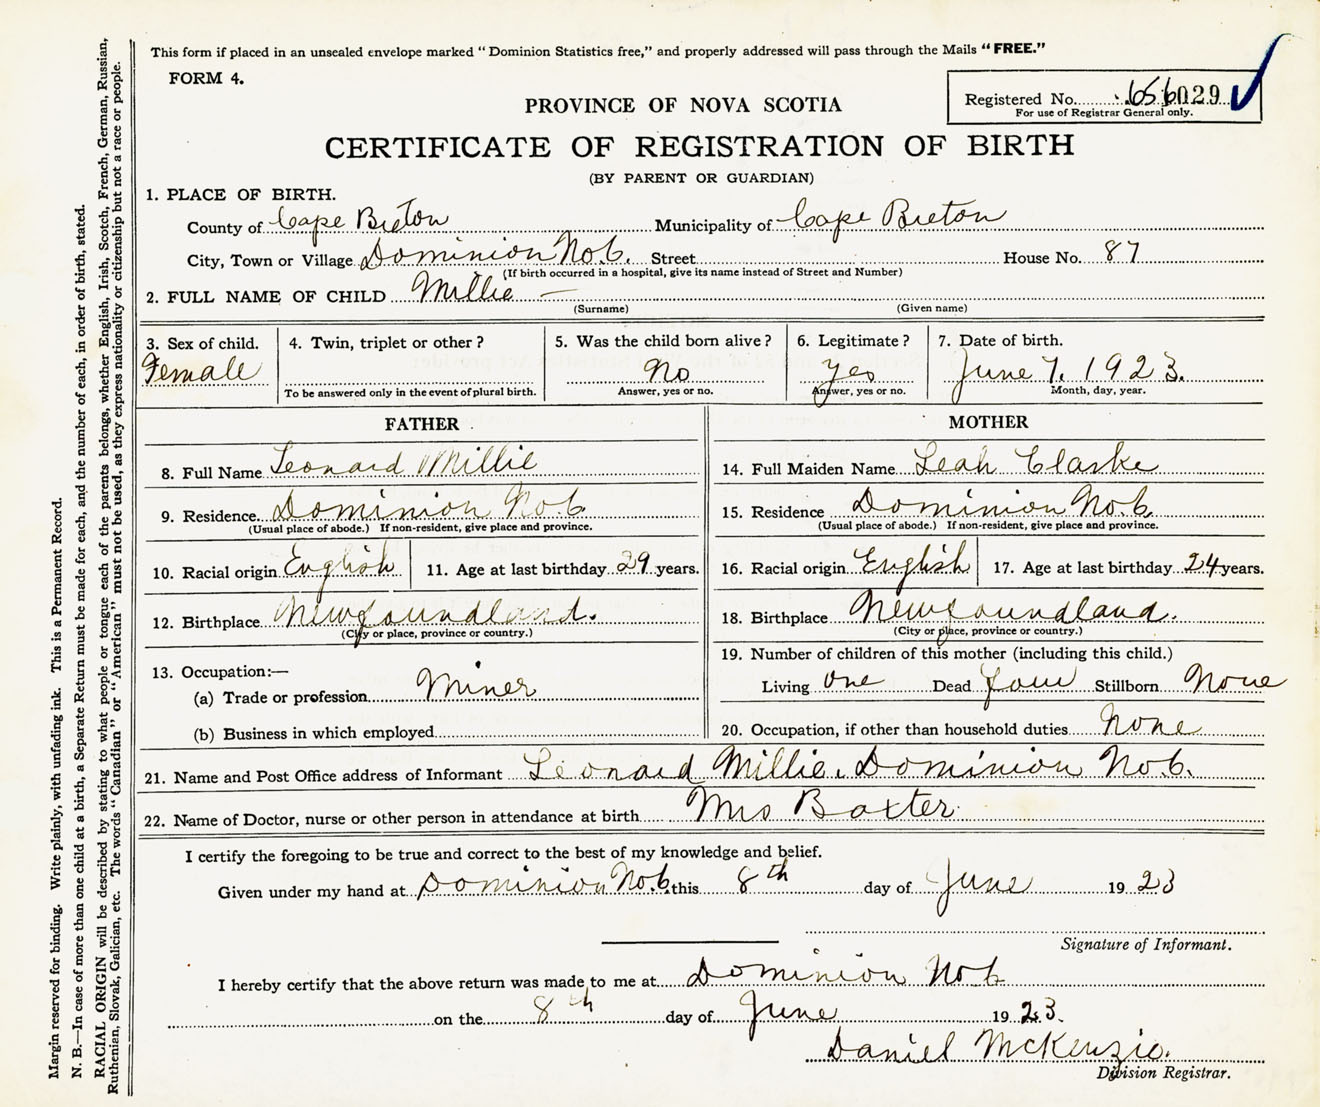 This form if placed in an unsealed envelope marked "Dominion Statistics free," and properly addressed will pass through the Mails "FREE."
FORM 4.
PROVINCE OF NOVA SCOTIA
Registered No. 029
For use of Registrar General only.
CERTIFICATE OF REGISTRATION OF BIRTH
(BY PARENT OR GUARDIAN)
1. PLACE OF BIRTH.
County of Cape Breton Municipality of Cape Breton
City, Town or Village Dominion No 6. Street House No. 87
(If birth occurred in a hospital, give its name instead of Street and Number)
2. FULL NAME OF CHILD Millie —
(Surname) (Given name)
3. Sex of child. 4. Twin, triplet or other? 5. Was the child born alive? 6. Legitimate? 7. Date of birth.
Female No Yes June 7. 1923.
To be answered only in the event of plural birth. Answer, yes or no. Answer, yes or no. Month, day, year.
FATHER MOTHER
8. Full Name Leonard Millie 14. Full Maiden Name Leah Clarke
9. Residence Dominion No. 6 15. Residence Dominion No. 6
(Usual place of abode.) If non-resident, give place and province. (Usual place of abode.) If non-resident, give place and province.
10. Racial origin English 11. Age at last birthday 29 years. 16. Racial origin English 17. Age at last birthday 24 years.
12. Birthplace Newfoundland. 18. Birthplace Newfoundland.
(City or place, province or country.) (City or place, province or country.)
13. Occupation:— 19. Number of children of this mother (including this child.)
(a) Trade or profession Miner Living one Dead four Stillborn None
(b) Business in which employed 20. Occupation, if other than household duties None
21. Name and Post Office address of Informant Leonard Millie. Dominion No 6.
22. Name of Doctor, nurse or other person in attendance at birth Mrs Baxter
I certify the foregoing to be true and correct to the best of my knowledge and belief.
Given under my hand at Dominion No. 6 this 8th day of June 1923
Signature of Informant.
I hereby certify that the above return was made to me at Dominion No 6
on the 8th day of June 1923.
Daniel McKenzie.
Division Registrar.
Margin reserved for binding. Write plainly, with unfading ink. This is a Permanent Record.
N. B.—In case of more than one child at a birth, a Separate Return must be made for each, and the number of each, in order of birth, stated.
RACIAL ORIGIN will be described by stating to what people or tongue each of the parents belongs, whether English, Irish, Scotch, French, German, Russian,
Ruthenian, Slovak, Galician, etc. The words "Canadian" or "American" must not be used, as they express nationality or citizenship but not a race or people.